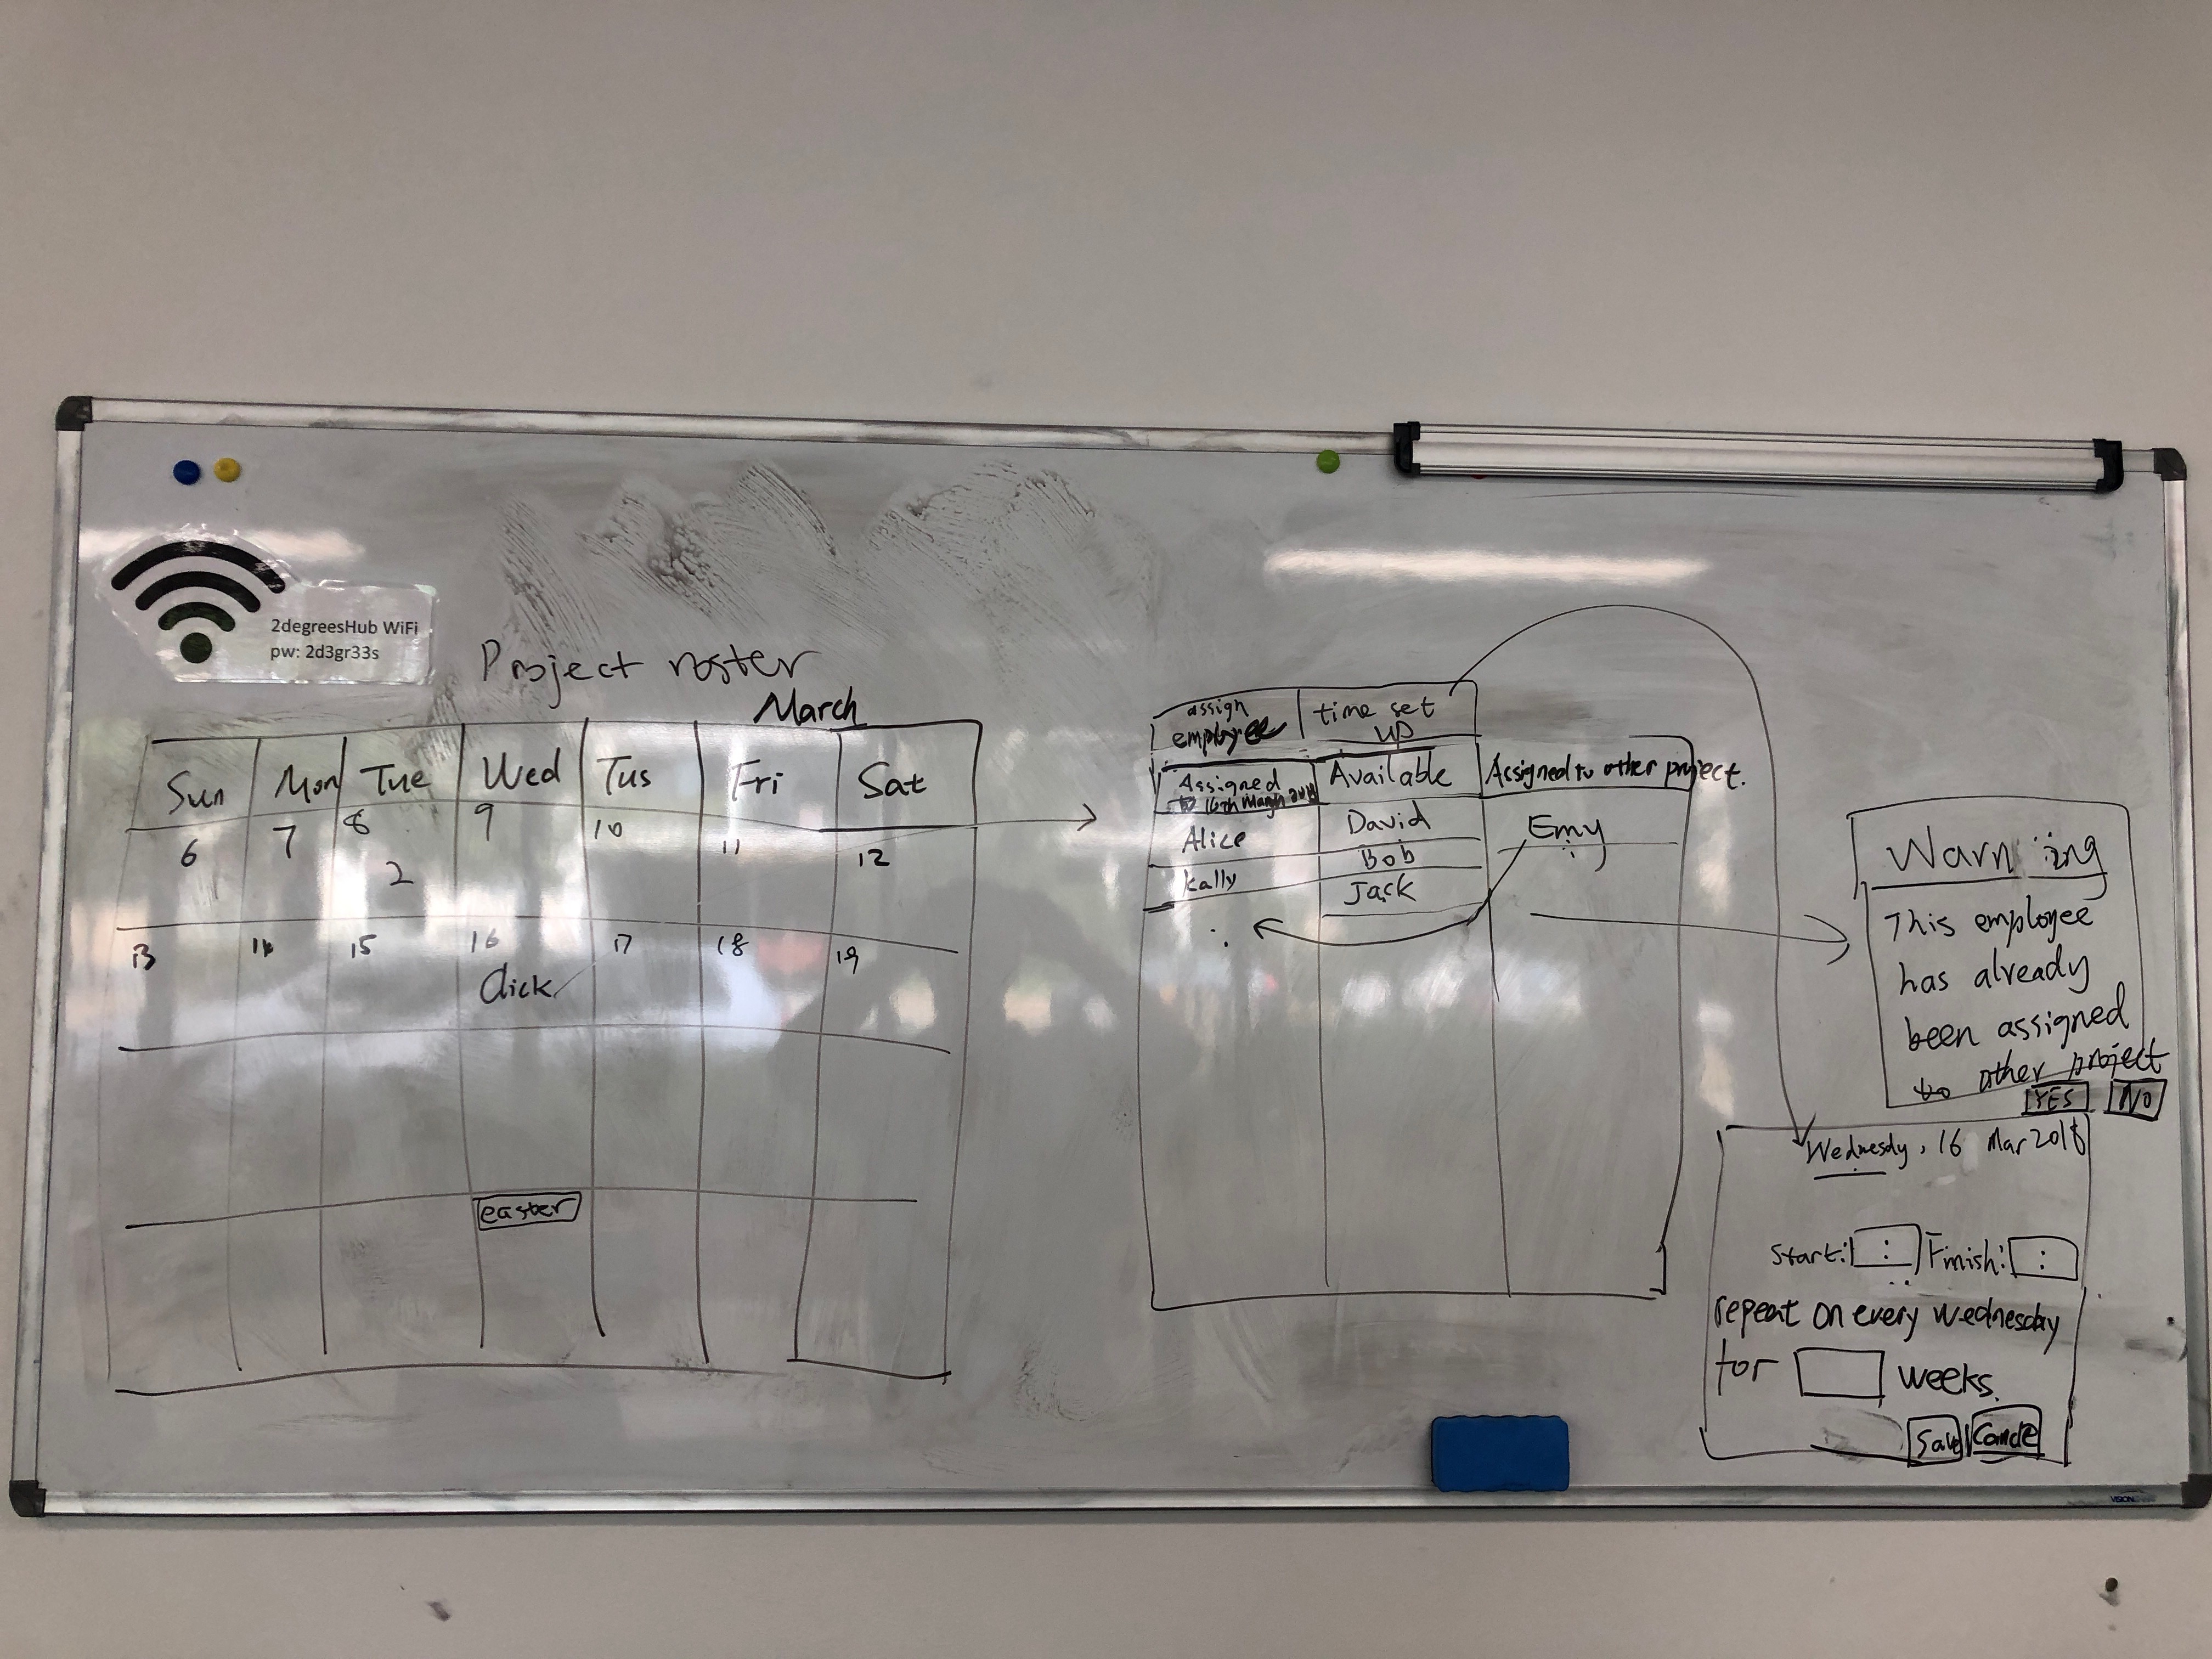 2degreesHub WiFi
pw: 2d3gr33s
Project roster
March
Sun Mon Tue Wed Tus Fri Sat
6 7 8 9 10 11 12
2
13 14 15 16 17 18 19
Click
easter
assign
employee
time set
up
Assigned
to 16th March
Available
Assigned to other project.
Alice
Kally
David
Bob
Jack
Emy
Warning
This employee
has already
been assigned
to other project
YES NO
Wednesdy, 16 Mar 2018
Start: : Finish: :
repeat on every wednesday
for weeks.
Save Cancle
VISION